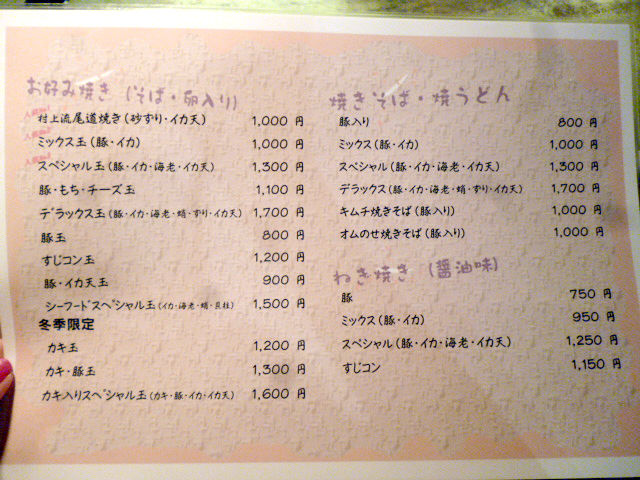 お好み焼き (そば・卵入り)
村上流尾道焼き(砂ずり・イカ天) 1,000 円
ミックス玉(豚・イカ) 1,000 円
スペシャル玉(豚・イカ・海老・イカ天) 1,300 円
豚・もち・チーズ玉 1,100 円
デラックス玉(豚・イカ・海老・蛸・ずり・イカ天) 1,700 円
豚玉 800 円
すじコン玉 1,200 円
豚・イカ天玉 900 円
シーフードスペシャル玉(イカ・海老・蛸・貝柱) 1,500 円
冬季限定
カキ玉 1,200 円
カキ・豚玉 1,300 円
カキ入りスペシャル玉(カキ・豚・イカ・イカ天) 1,600 円
焼きそば・焼うどん
豚入り 800 円
ミックス(豚・イカ) 1,000 円
スペシャル(豚・イカ・海老・イカ天) 1,300 円
デラックス(豚・イカ・海老・蛸・ずり・イカ天) 1,700 円
キムチ焼きそば(豚入り) 1,000 円
オムのせ焼きそば(豚入り) 1,000 円
ねぎ焼き (醤油味)
豚 750 円
ミックス(豚・イカ) 950 円
スペシャル(豚・イカ・海老・イカ天) 1,250 円
すじコン 1,150 円